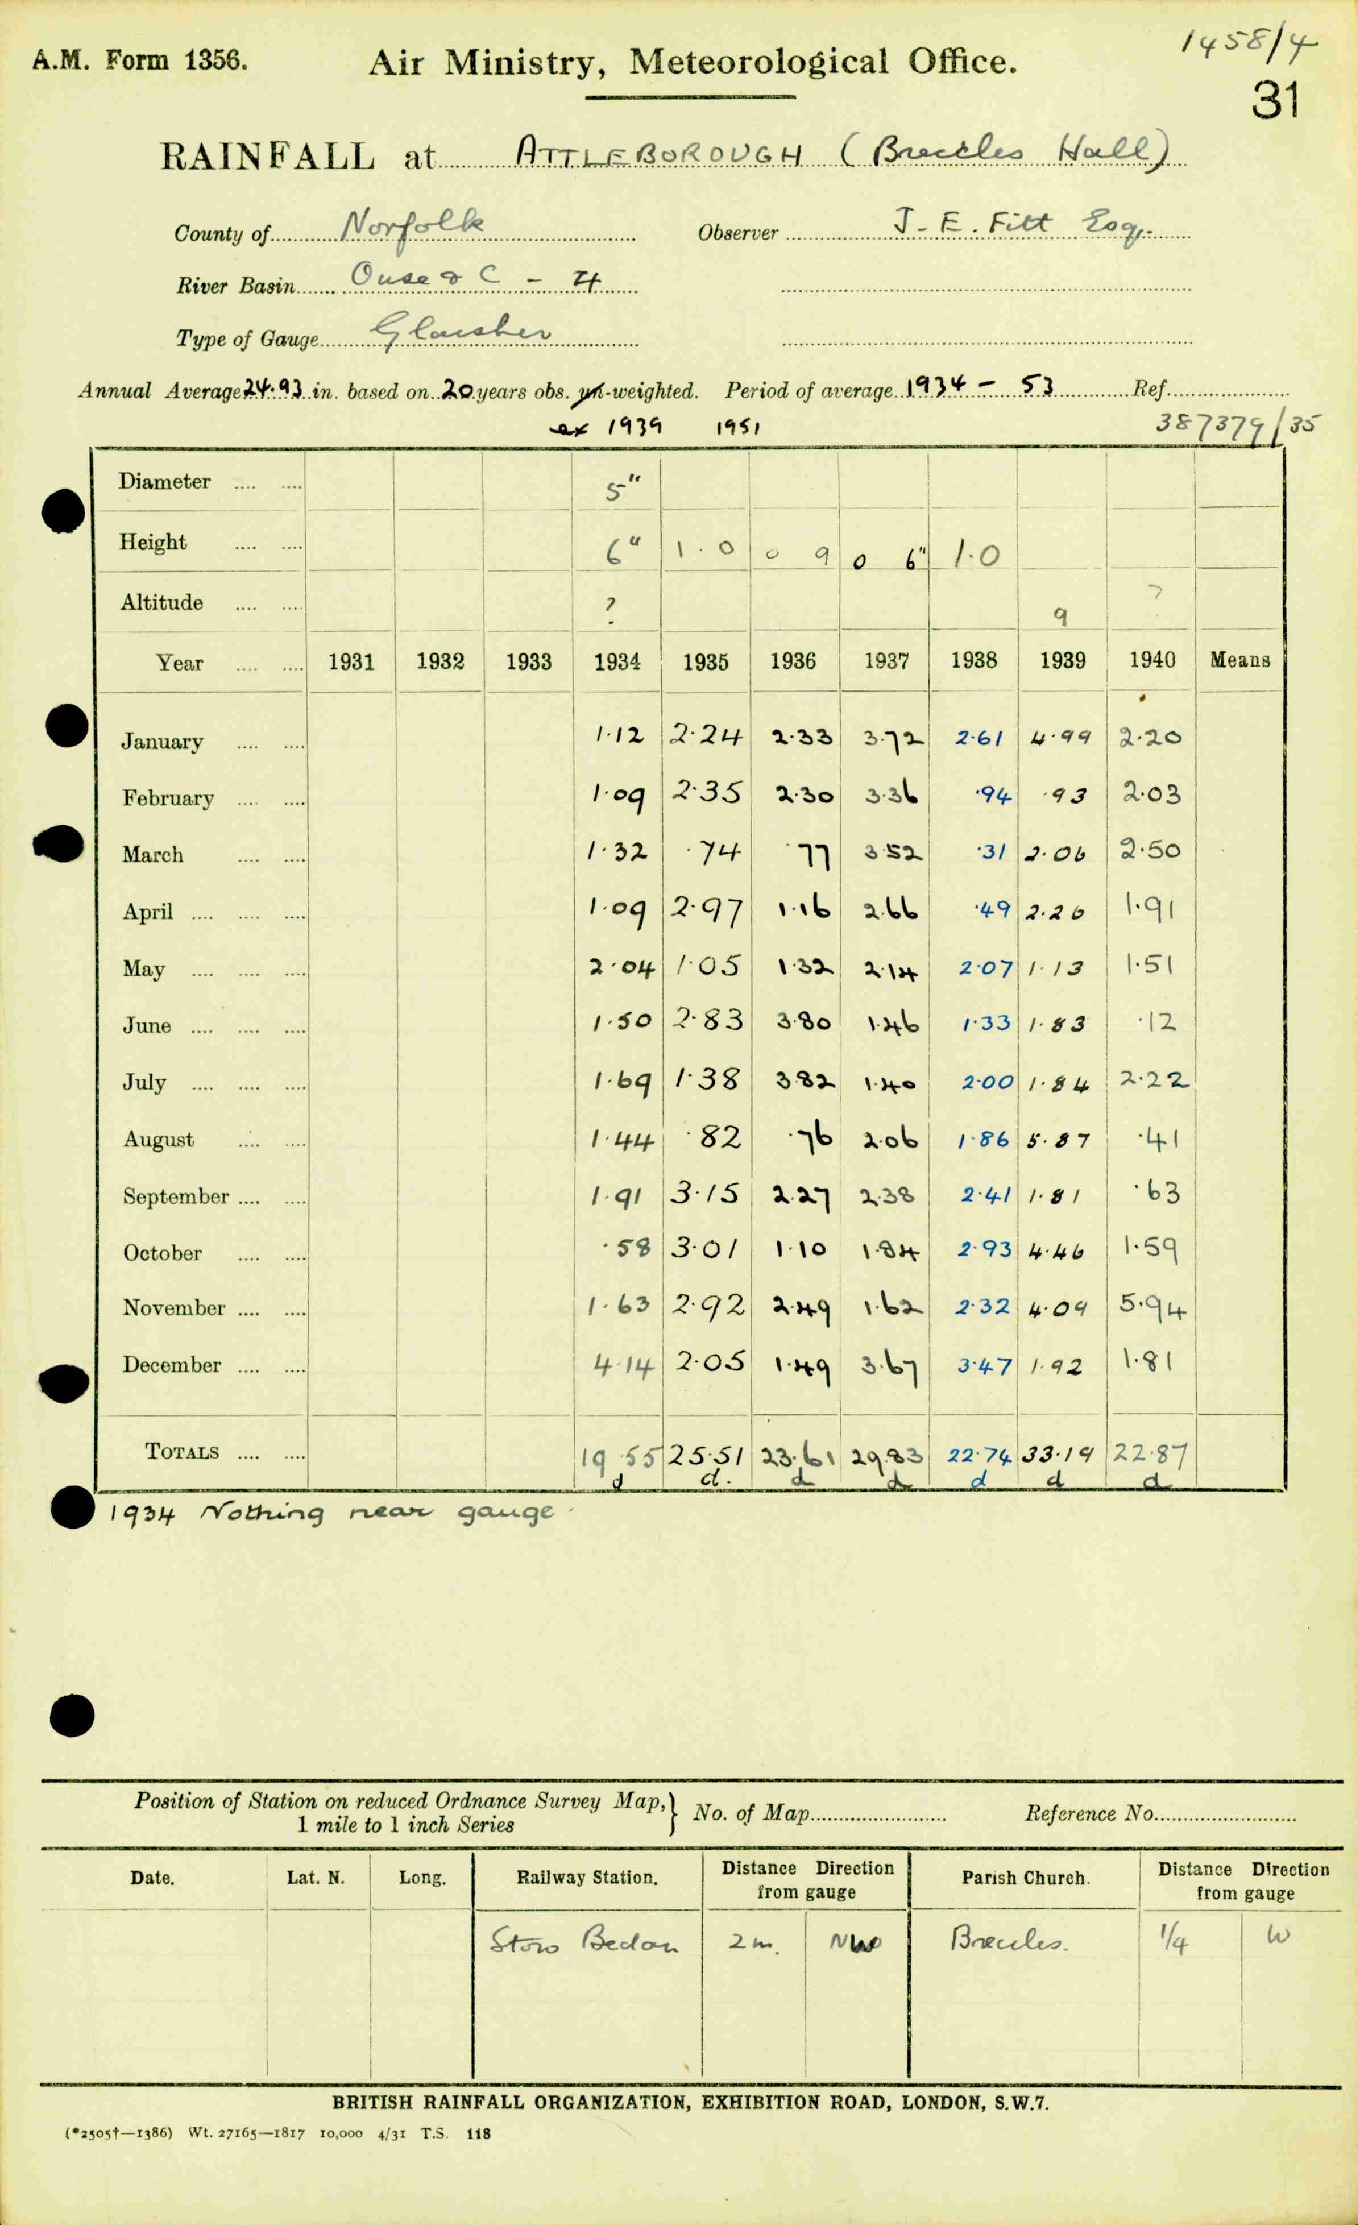 1458/4
A.M. Form 1356. Air Ministry, Meteorological Office.
31
RAINFALL at ATTLEBOROUGH (Breccles Hall)
County of Norfolk Observer J. E. Fitt Esq.
River Basin Ouse & C - 4
Type of Gauge Glaisher
Annual Average 24.93 in. based on 20 years obs. un-weighted. Period of average 1934 - 53 Ref.
ex 1939 1951 387379/35
Diameter .... .... 5"
Height .... .... 6" 1.0 0 9 0 6" 1.0
Altitude .... .... ? 9 ?
Year .... .... 1931 1932 1933 1934 1935 1936 1937 1938 1939 1940 Means
January .... .... 1.12 2.24 2.33 3.72 2.61 4.99 2.20
February .... .... 1.09 2.35 2.30 3.36 .94 .93 2.03
March .... .... 1.32 .74 .77 3.52 .31 2.06 2.50
April .... .... .... 1.09 2.97 1.16 2.66 .49 2.26 1.91
May .... .... .... 2.04 1.05 1.32 2.14 2.07 1.13 1.51
June .... .... .... 1.50 2.83 3.80 1.46 1.33 1.83 .12
July .... .... .... 1.69 1.38 3.82 1.40 2.00 1.84 2.22
August .... .... 1.44 .82 .76 2.06 1.86 5.87 .41
September .... .... 1.91 3.15 2.27 2.38 2.41 1.81 .63
October .... .... .58 3.01 1.10 1.84 2.93 4.46 1.59
November .... .... 1.63 2.92 2.49 1.62 2.32 4.09 5.94
December .... .... 4.14 2.05 1.49 3.67 3.47 1.92 1.81
TOTALS .... .... 19.55 25.51 23.61 29.83 22.74 33.19 22.87
d d. d d d d d
1934 Nothing near gauge
Position of Station on reduced Ordnance Survey Map, } No. of Map Reference No.
1 mile to 1 inch Series
Date. Lat. N. Long. Railway Station. Distance Direction Parish Church. Distance Direction
from gauge from gauge
Stow Bedon 2 m. NW Breccles. 1/4 W
BRITISH RAINFALL ORGANIZATION, EXHIBITION ROAD, LONDON, S.W.7.
(*2505†—1386) Wt. 27165—1817 10,000 4/31 T.S. 118